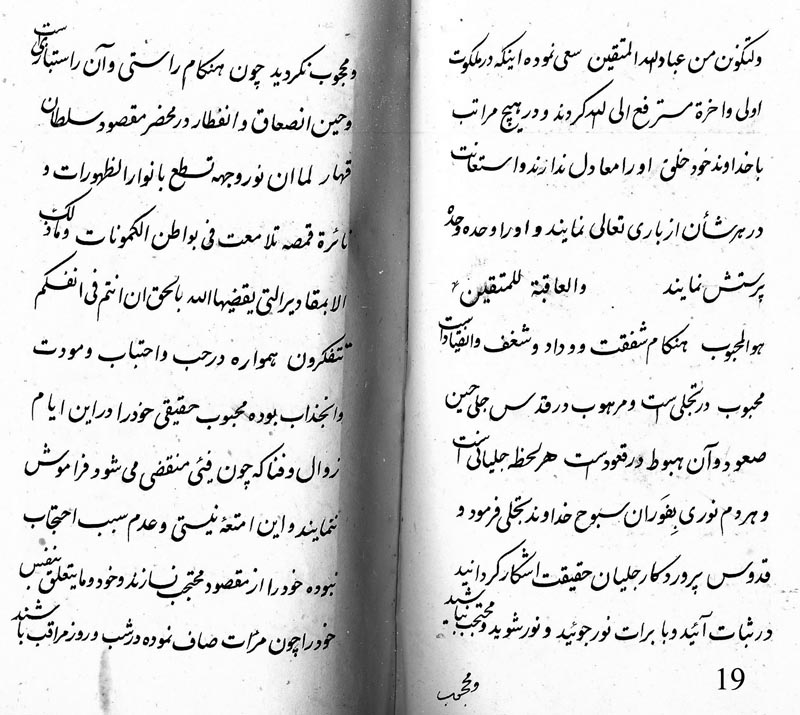 ولتکونن من عباد الله المتقین سعی نموده اینکه در ملکوت
اولی واخرة مسترفع الی الله کردند و در هیچ مراتب
با خداوند خود خلق او را معادل ندارند و استعانت
در هر شأن از باری تعالی نمایند و او را وحده وحده
پرستش نمایند والعاقبة للمتقین
هو المحبوب هنکام شفقت و وداد و شغف وانقیاد است
محبوب در تجلی است و مرهوب در قدس جلی حین
صعود و آن هبوط در قعود است هر لحظه جلیانی است
و هر دم نوری بِفَوَران سبوح خداوند تجلی فرمود و
قدوس پروردکار جلیان حقیقت اشکار کردانید
در ثبات آئید و با برات نور جوئید و نور شوید و محتجب نباشید
ومحجوب
19
ومحجوب نکردید چون هنکام راستی و آن راستبازی است
وحین انصعاق و انفطار در محضر مقصود سلطان
قهار لما ان نور وجهه تسطع بانوار الظهورات و
نائرة قمصه تلامعت فی بواطن الکمونات وما ذلک
الا بمقادیر التی یقضیها الله بالحق ان انتم فی انفسکم
تتفکرون همواره در حب و احتباب و مودت
وانجذاب بوده محبوب حقیقی خود را در این ایام
زوال و فنا که چون فیئی منقضی می شود فراموش
ننمایند و این امتعهٔ نیستی و عدم سبب احتجاب
نبوده خود را از مقصود محتجب نسازند و خود و ما یتعلق بنفس
خود را چون مرّات صاف نموده در شب و روز مراقب باشند